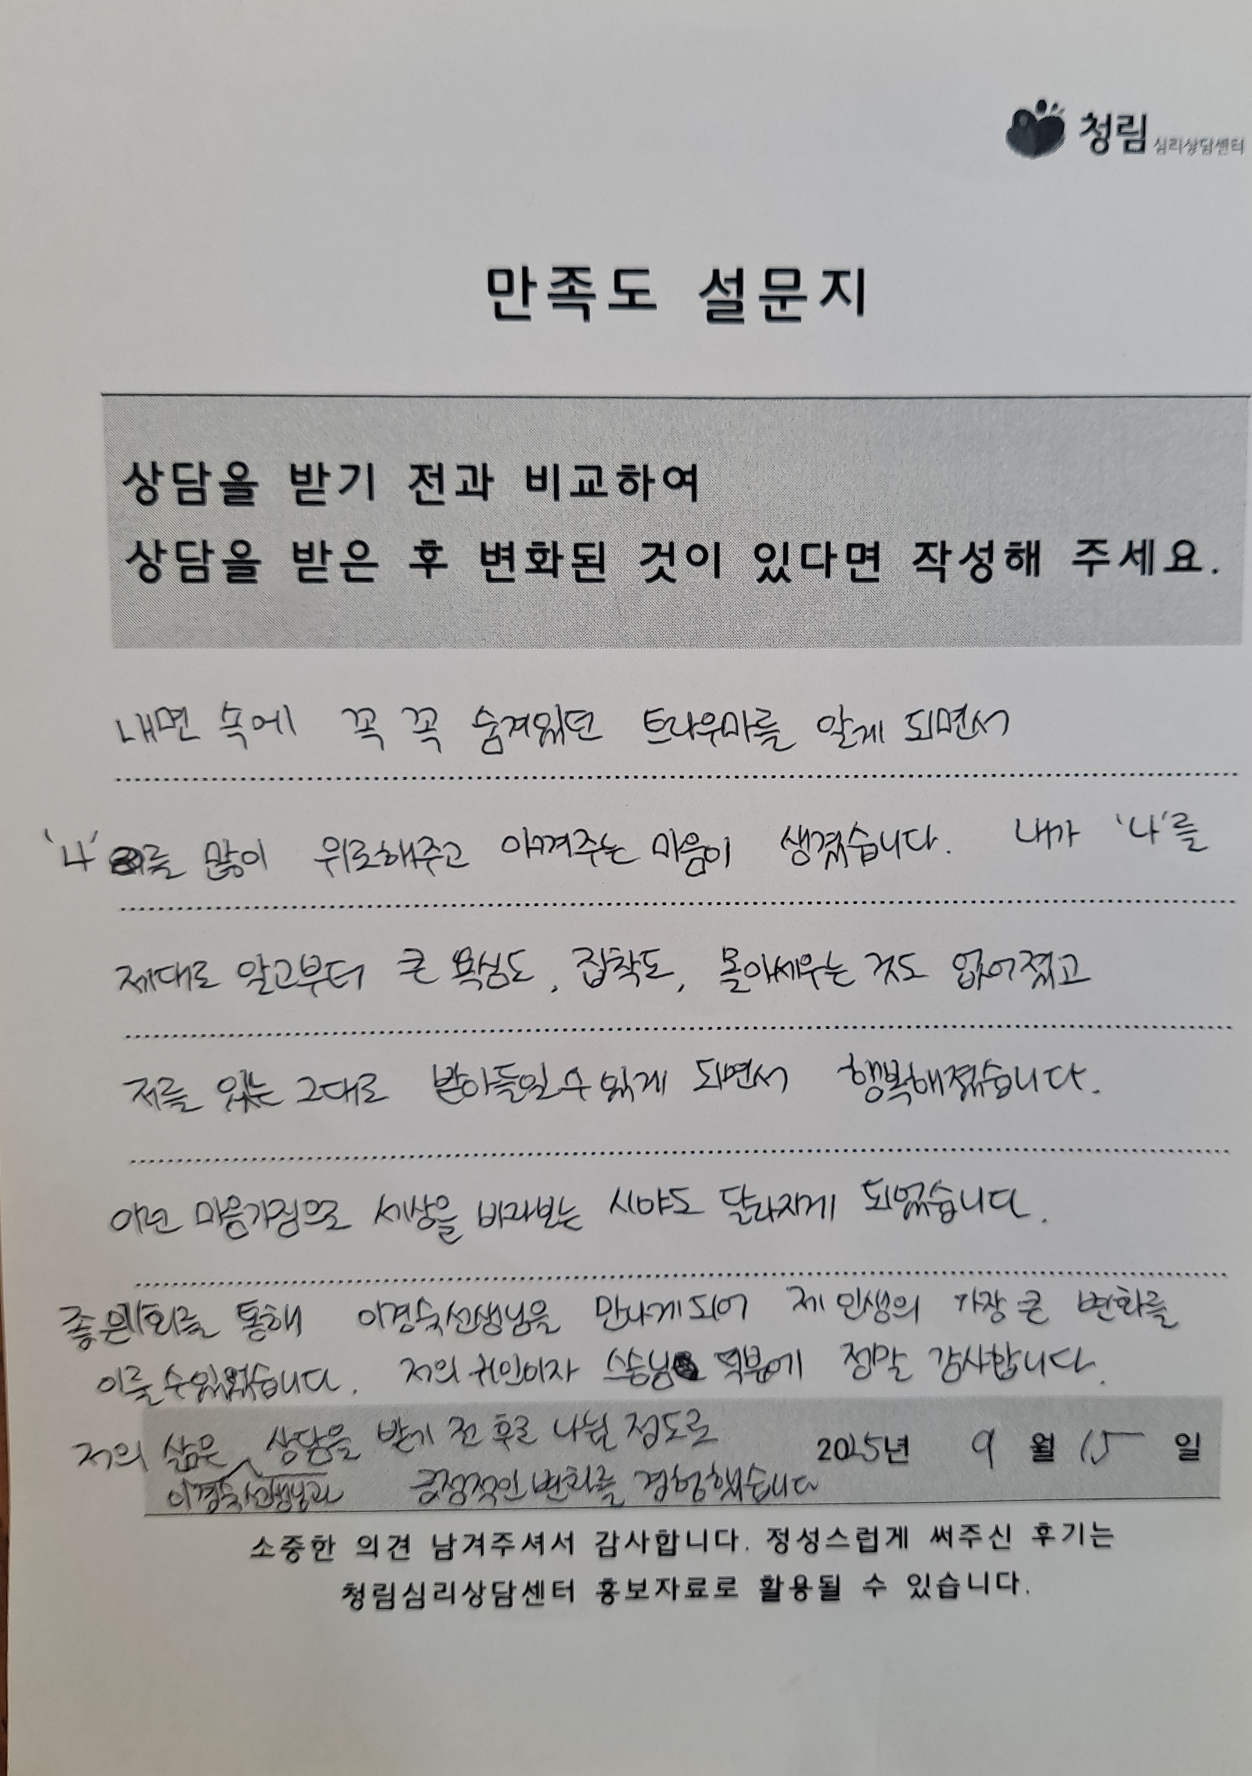 청림 심리상담센터
만족도 설문지
상담을 받기 전과 비교하여
상담을 받은 후 변화된 것이 있다면 작성해 주세요.
내면 속에 꼭 꼭 숨겨있던 트라우마를 알게 되면서
'나'를 많이 위로해주고 아껴주는 마음이 생겼습니다. 내가 '나'를
제대로 알고부터 큰 욕심도, 집착도, 몰아세우는 것도 없어졌고
저를 있는 그대로 받아들일수있게 되면서 행복해졌습니다.
이런 마음가짐으로 세상을 바라보는 시야도 달라지게 되었습니다.
좋은기회를 통해 이경숙선생님을 만나게되어 제 인생의 가장 큰 변화를
이룰수있었습니다. 저의 귀인이자 스승님 덕분에 정말 감사합니다.
저의 삶은 상담을 받기 전 후로 나뉠 정도로 2025년 9월 15일
이경숙선생님과 긍정적인 변화를 경험했습니다
소중한 의견 남겨주셔서 감사합니다. 정성스럽게 써주신 후기는
청림심리상담센터 홍보자료로 활용될 수 있습니다.